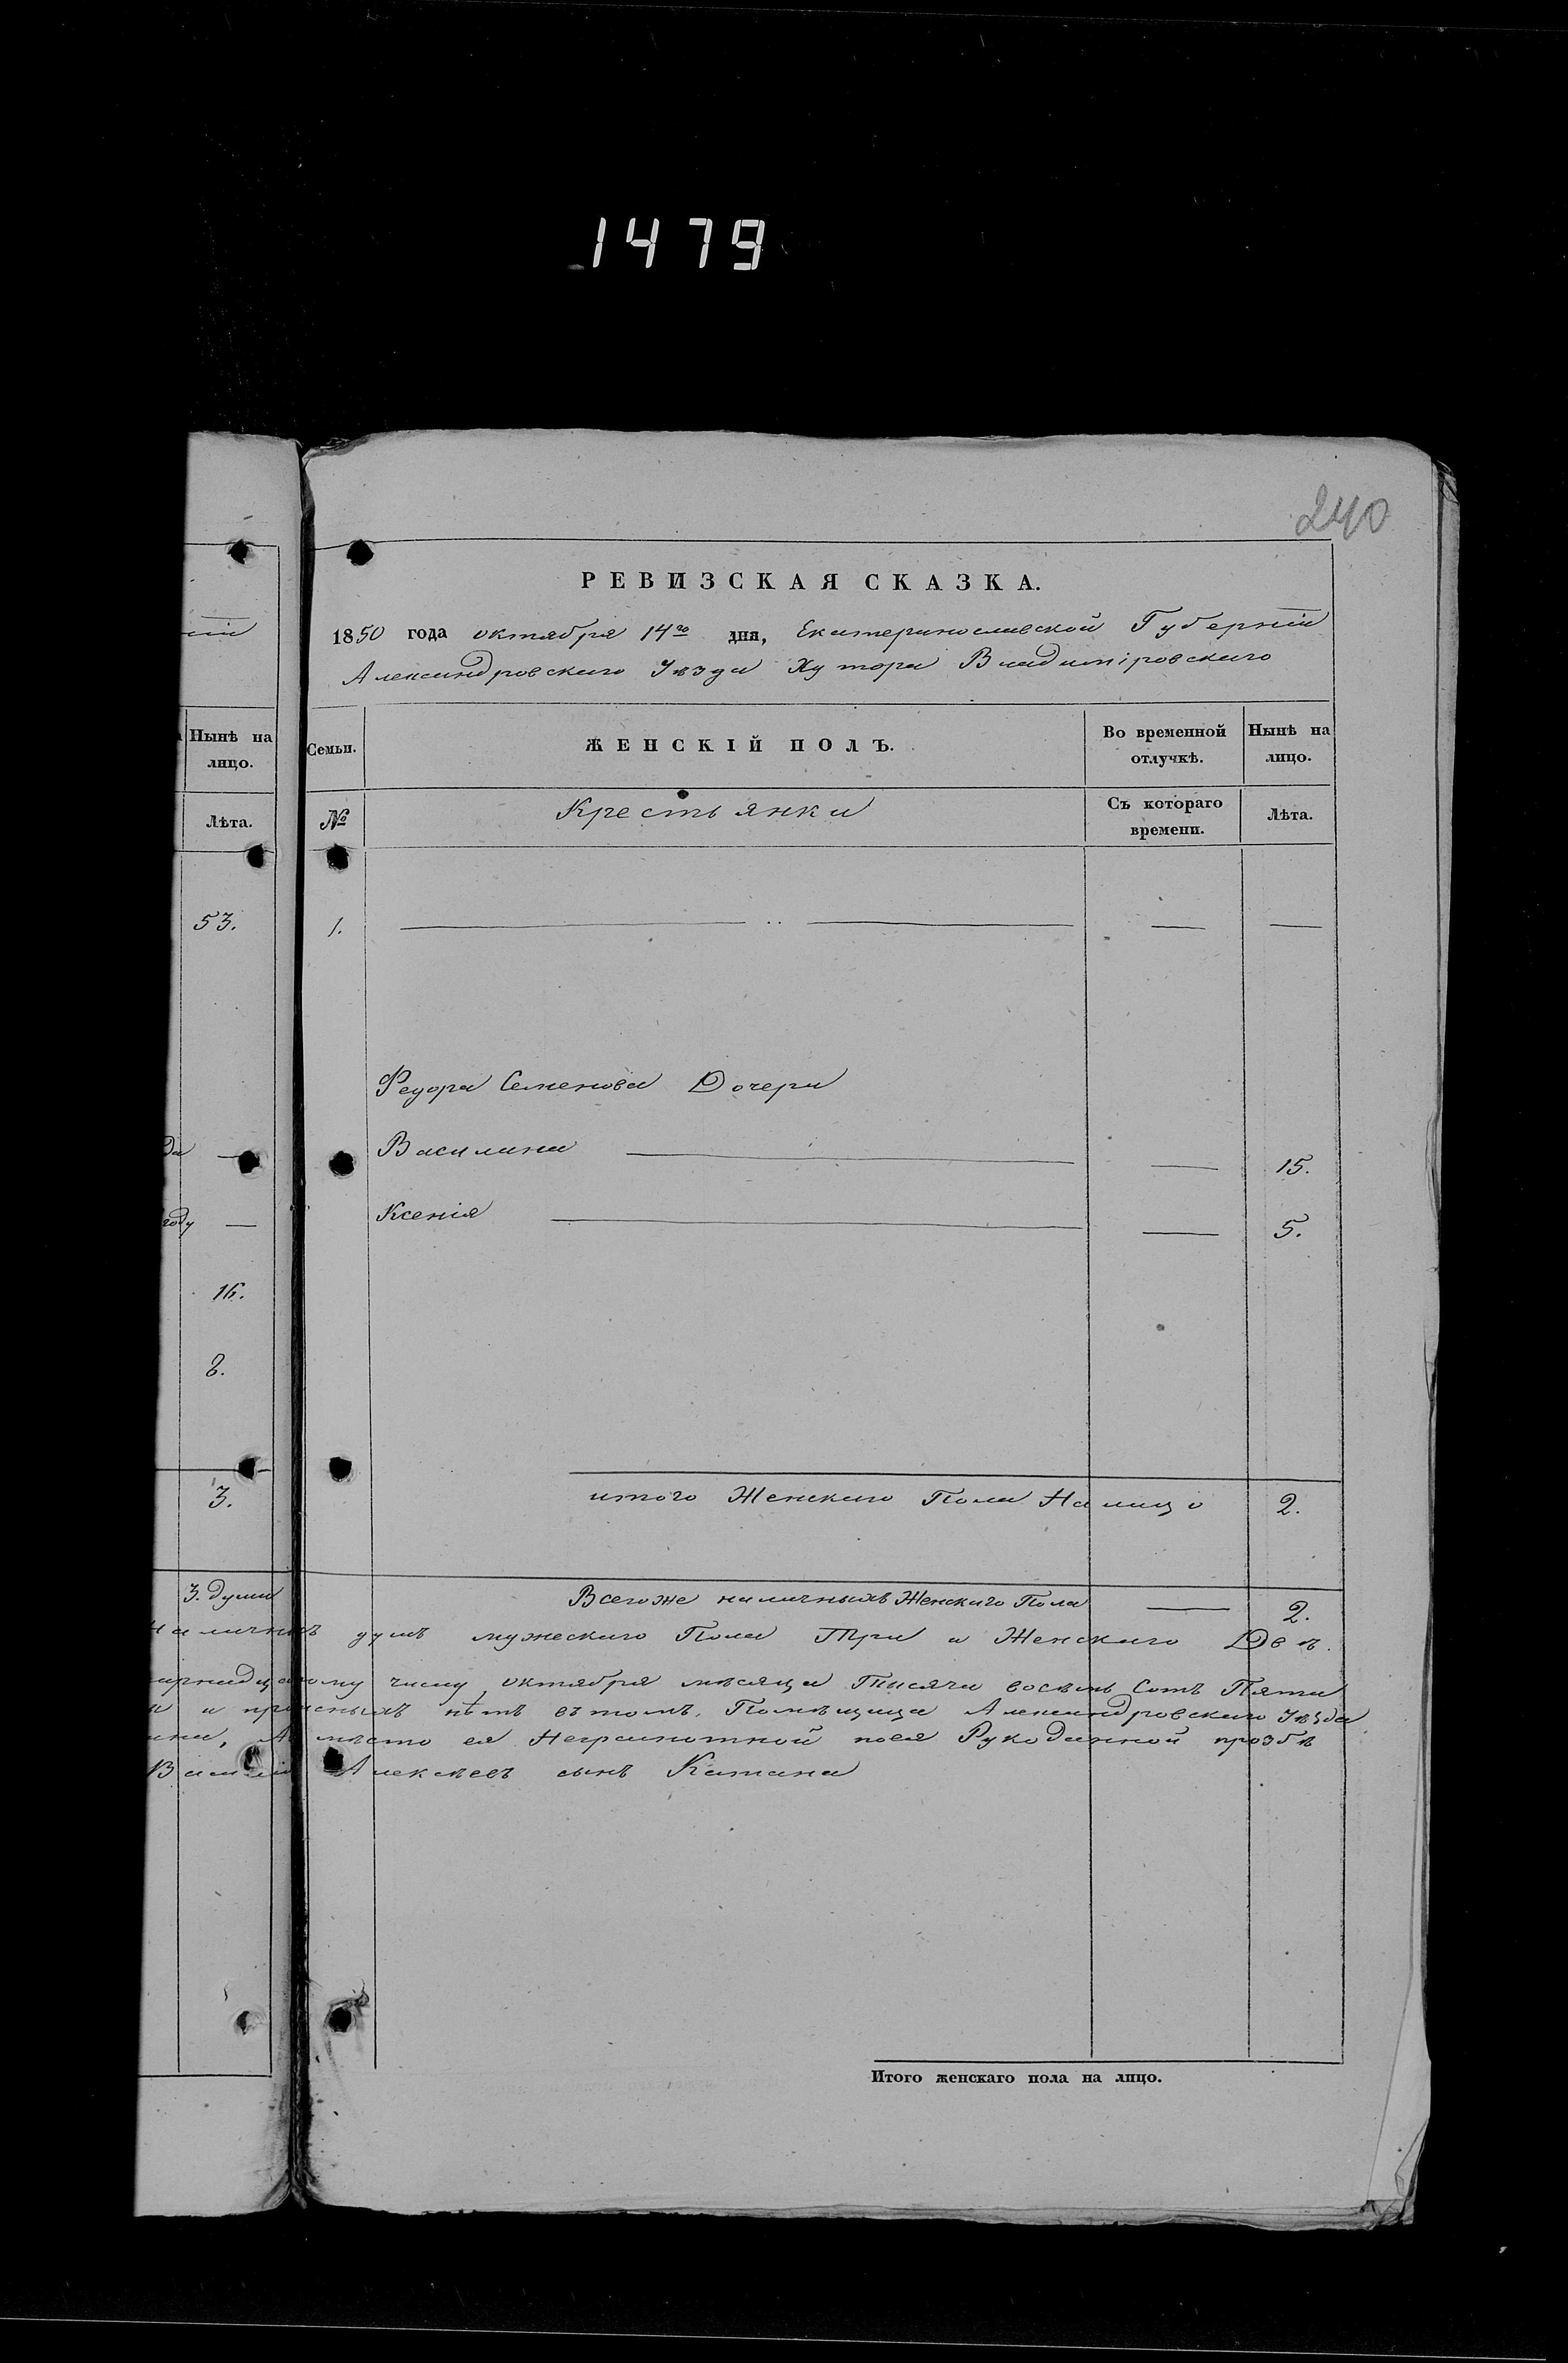 1479
240
РЕВИЗСКАЯ СКАЗКА.
1850 года октября 14го дня, Екатеринославской Губерніи
Александровскаго Уѣзда Хутора Владиміровскаго
Нынѣ на лицо.
Лѣта.
53.
16.
8.
3.
3. души
Семьи.
ЖЕНСКІЙ ПОЛЪ.
Во временной отлучкѣ.
Нынѣ на лицо.
№
Крестьянки
Съ котораго времени.
Лѣта.
1.
Федора Семенова Дочери
Василина 15.
Ксенія 5.
итого Женскаго Пола На лицо 2.
Всего же наличныхъ Женскаго Пола 2.
наличныхъ душъ мужескаго Пола Три и Женскаго Двѣ.
числу октября мѣсяца Тысяча восемь Сотъ Пяти
нѣтъ въ томъ. Помѣщица Александровскаго Уѣзда
мѣсто ея Неграмотной поея Рукоданной прозбѣ
Алексѣевъ сынъ Катана
Итого женскаго пола на лицо.